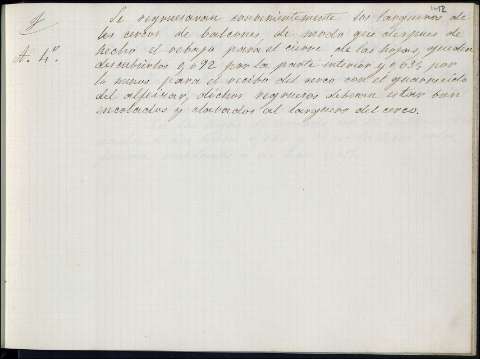 142
Se regruesaran convenientemente los largueros de
los cercos de balcones, de modo que despues de
A. 4º.
hecho el rebajo para el cierre de las hojas, queden
descubiertos 0,092 por la parte interior y 0,035 por
lo menos para el recibo del cerco con el guarnecido
del alfeizar, dichos regruesos deberan estar bien
encolados y clavados al larguero del cerco.